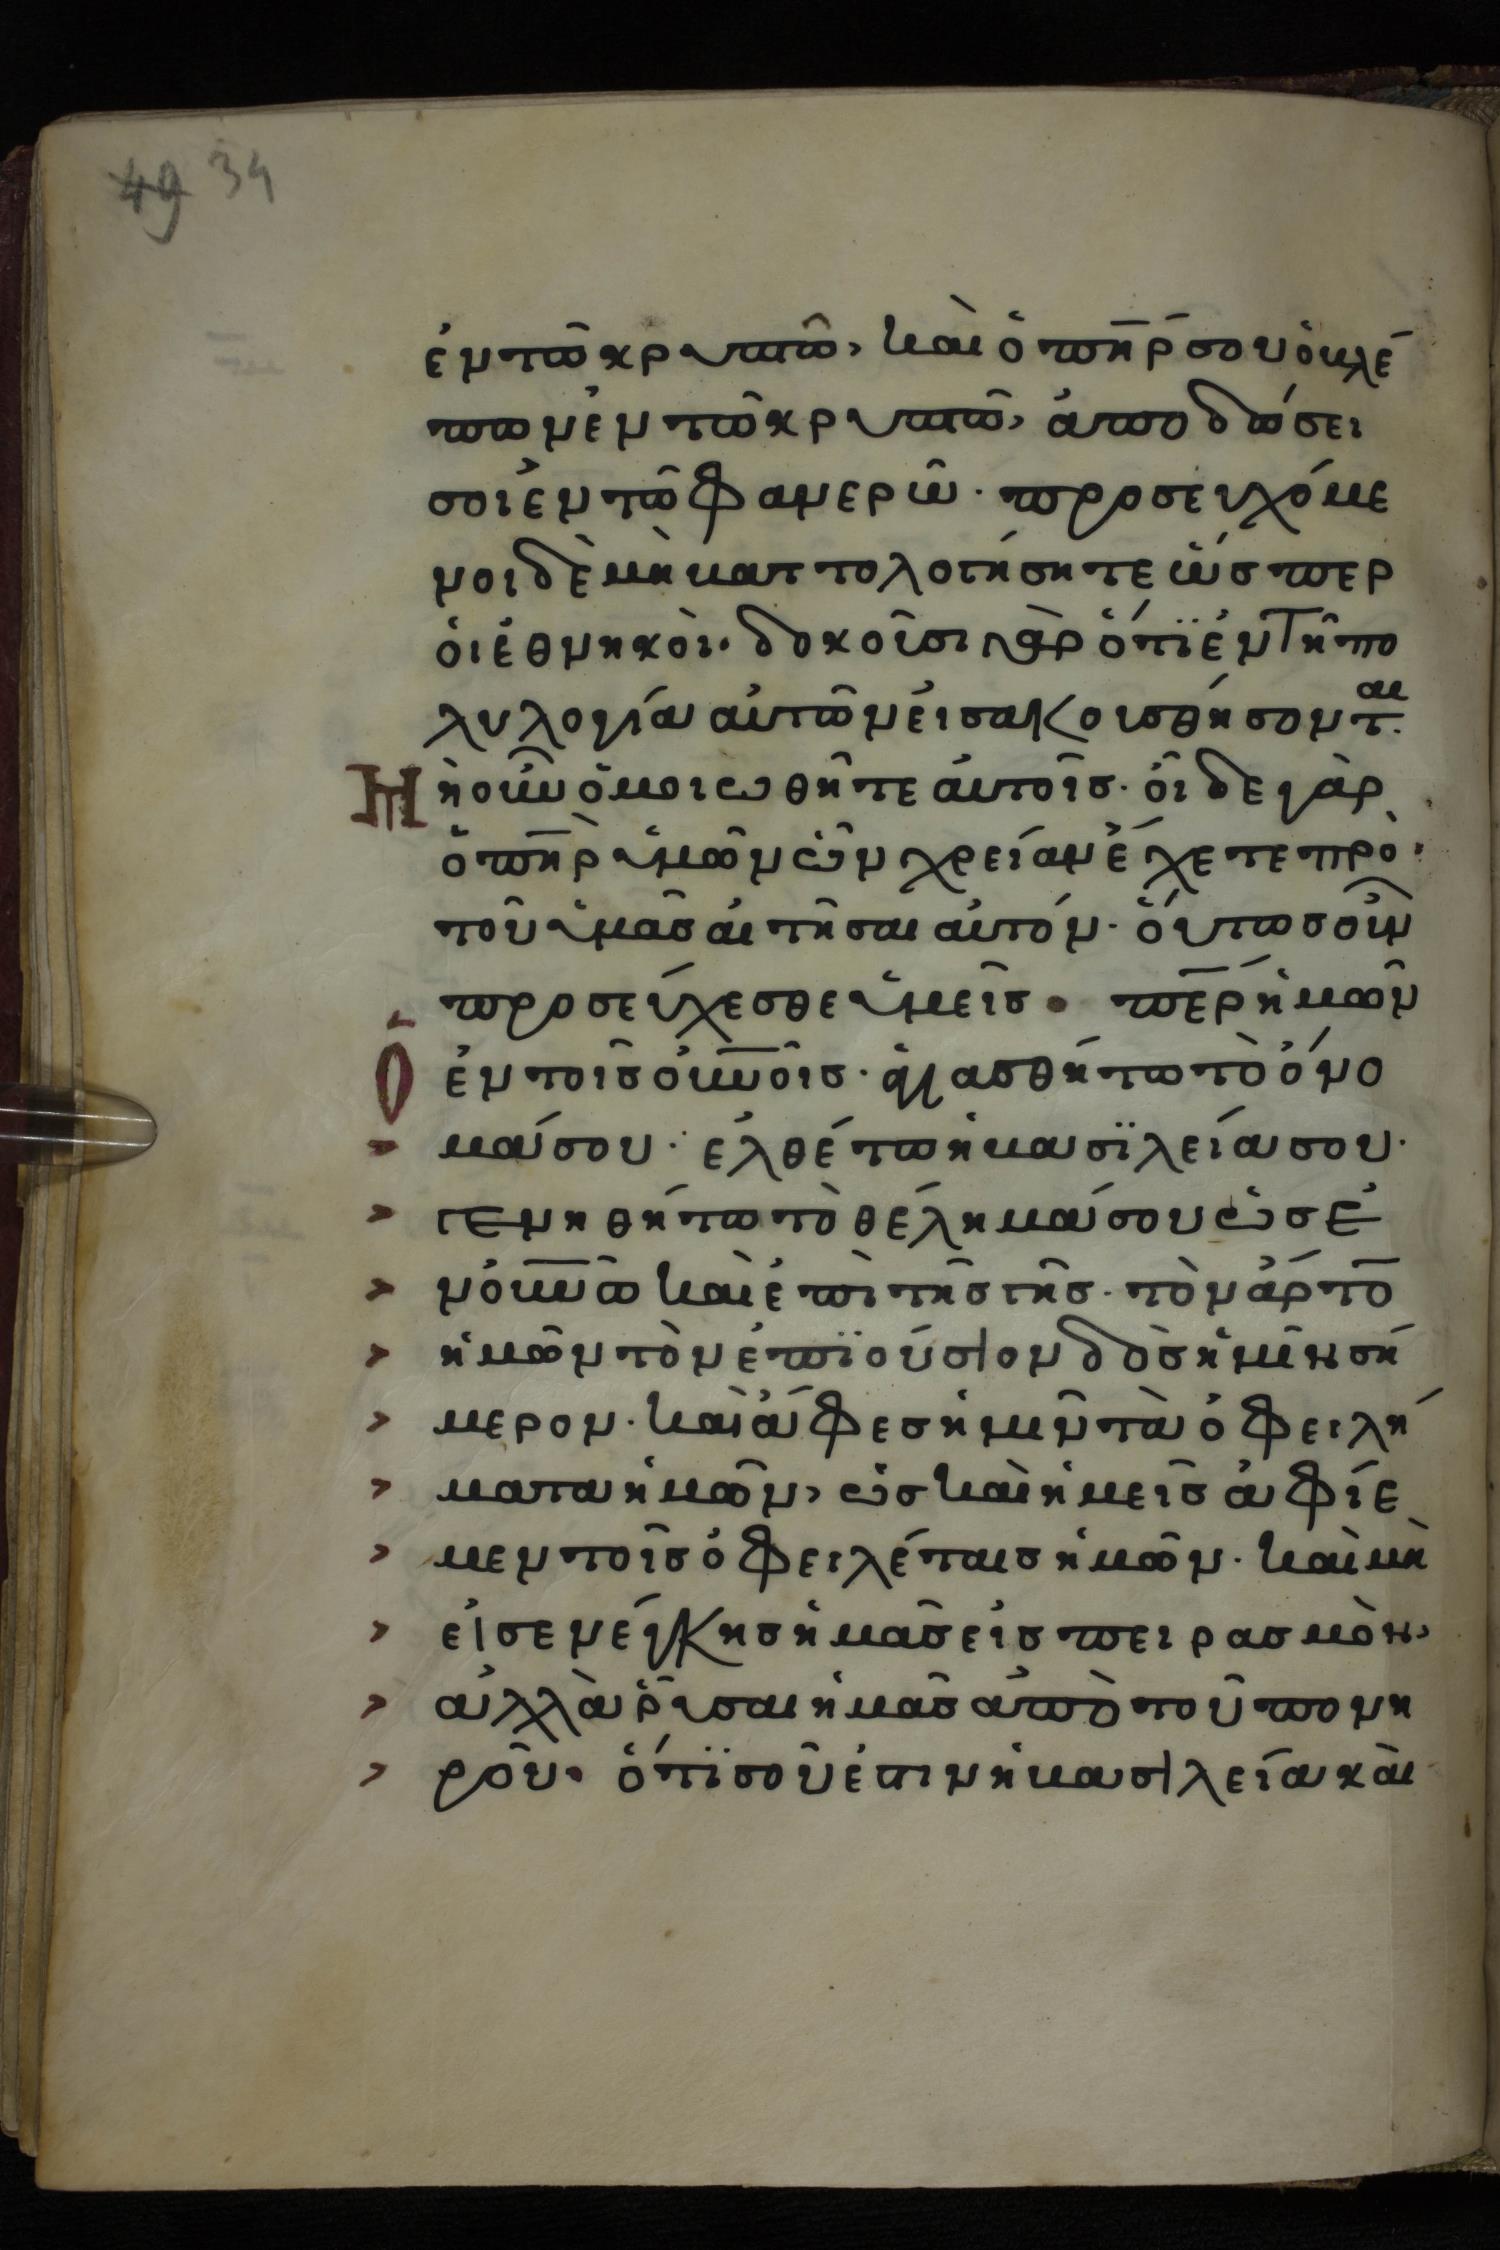 49 34
ἐν τῶ κρυπτῶ, καὶ ὁ πη̅ρ σου ὁ βλέ
πων ἐν τῶ κρυπτῶ, ἀποδώσει
σοι ἐν τῶ φανερῶ· προσευχόμε
νοι δὲ μὴ βαττολογήσητε ὥσπερ
ὁι ἐθνηκὸι· δοκοῦσι γὰρ ὅτϊ ἐν τῆ πο
λυλογία αυτῶν ἐισακουσθήσονται·
Μὴ οὖν ὁμοιωθῆτε ἀυτοῖς· οἶδε γὰρ
ὁ πη̅ρ ὑμῶν ὧν χρείαν ἔχετε πρὸ
τοῦ ὑμᾶς ἀιτῆσαι αυτόν· ὅυτως οὖν
προσεύχεσθε ὑμεῖς· πε̅ρ ἡμῶν
Ὁ ἐν τοῖς ὀυ̅νοῖς· ἁγιασθήτω τὸ ὄνο
μά σου· ἐλθέτω ἡ βασϊλεία σου·
γενηθήτω τὸ θέλημά σου ὡς ἐ
ν ὀυ̅νῶ καὶ ἐπὶ τῆς γῆς· τὸν ἄρτο̅
ἡμῶν τὸν ἐπϊούσιον δὸς ἡμῖν σή
μερον· καὶ ἄφες ἡμῖν τὰ ὀφειλή
ματα ἡμῶν, ὡς καὶ ἡμεῖς ἀφίε
μεν τοῖς ὀφειλέταις ἡμῶν· καὶ μὴ
εἰσενέγκης ἡμᾶς εἰς πειρασμὸν,
ἀλλὰ ῥῦσαι ἡμᾶς ἀπὸ τοῦ πονη
ροῦ· ὅτϊ σοῦ ἐστιν ἡ βασιλεία καὶ